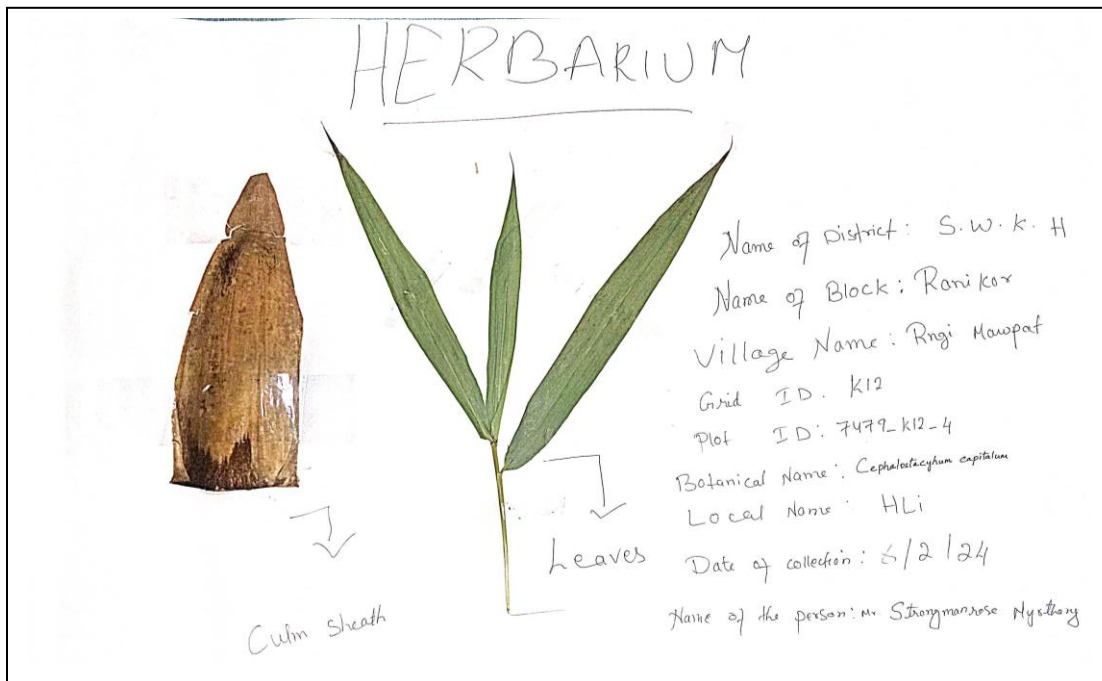 HERBARIUM
Name of District: S.W.K.H
Name of Block: Ranikor
Village Name: Rngi Mawpat
Grid ID. K12
Plot ID: 7479_K12_4
Botanical Name: Cephalostacyhum capitalum
Local Name: HLi
Date of collection: /2/24
Name of the person: Mr Strongmanrose
Leaves
Culm sheath